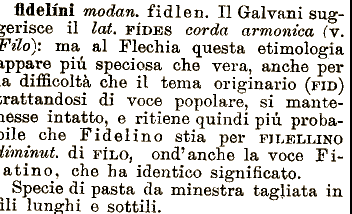 fidelíni modan. fidlen. Il Galvani sug-
gerisce il lat. FÍDES corda armonica (v.
Filo): ma al Flechia questa etimologia
appare piú speciosa che vera, anche per
la difficoltà che il tema originario (FID)
trattandosi di voce popolare, si mante-
nesse intatto, e ritiene quindi piú proba-
bile che Fidelino stia per FILELLINO
diminut. di FÍLO, ond'anche la voce Fi-
latino, che ha identico significato.
Specie di pasta da minestra tagliata in
fili lunghi e sottili.